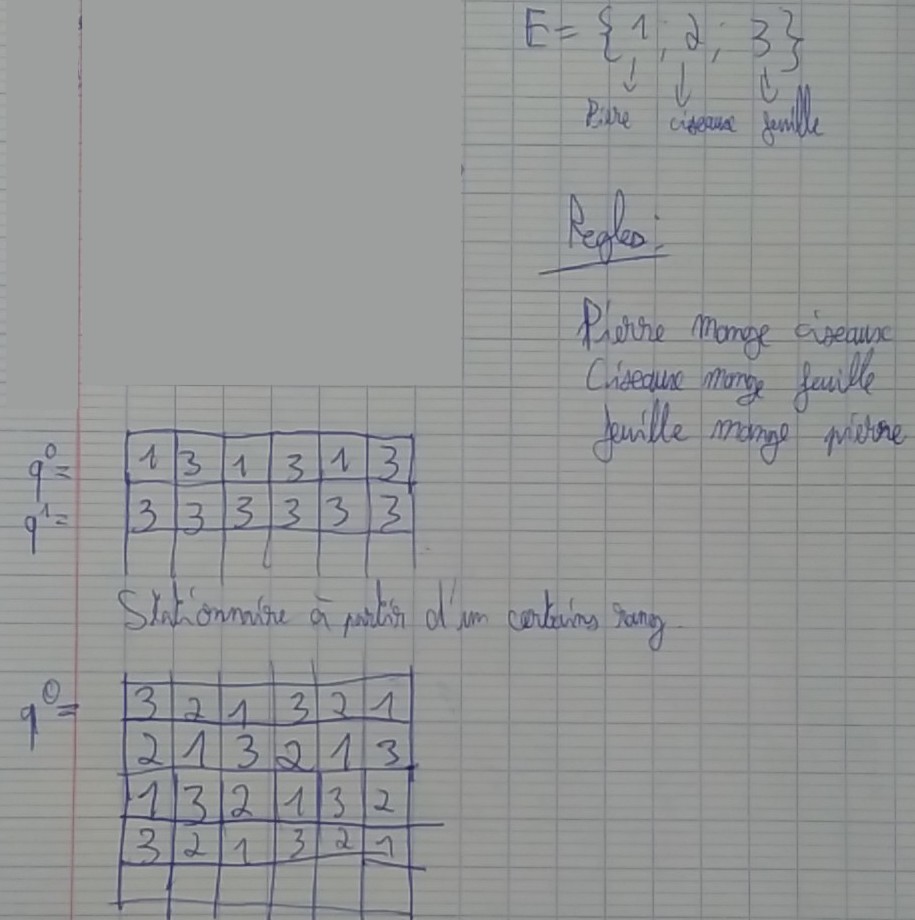 E = {1 ; 2 ; 3}
↓ ↓ ↓
Pierre ciseaux feuille
Regles :
Pierre mange ciseaux
Ciseaux mange feuille
feuille mange pierre
q⁰= 1 3 1 3 1 3
q¹= 3 3 3 3 3 3
Stationnaire à partir d'un certains rang
q⁰= 3 2 1 3 2 1
2 1 3 2 1 3
1 3 2 1 3 2
3 2 1 3 2 1